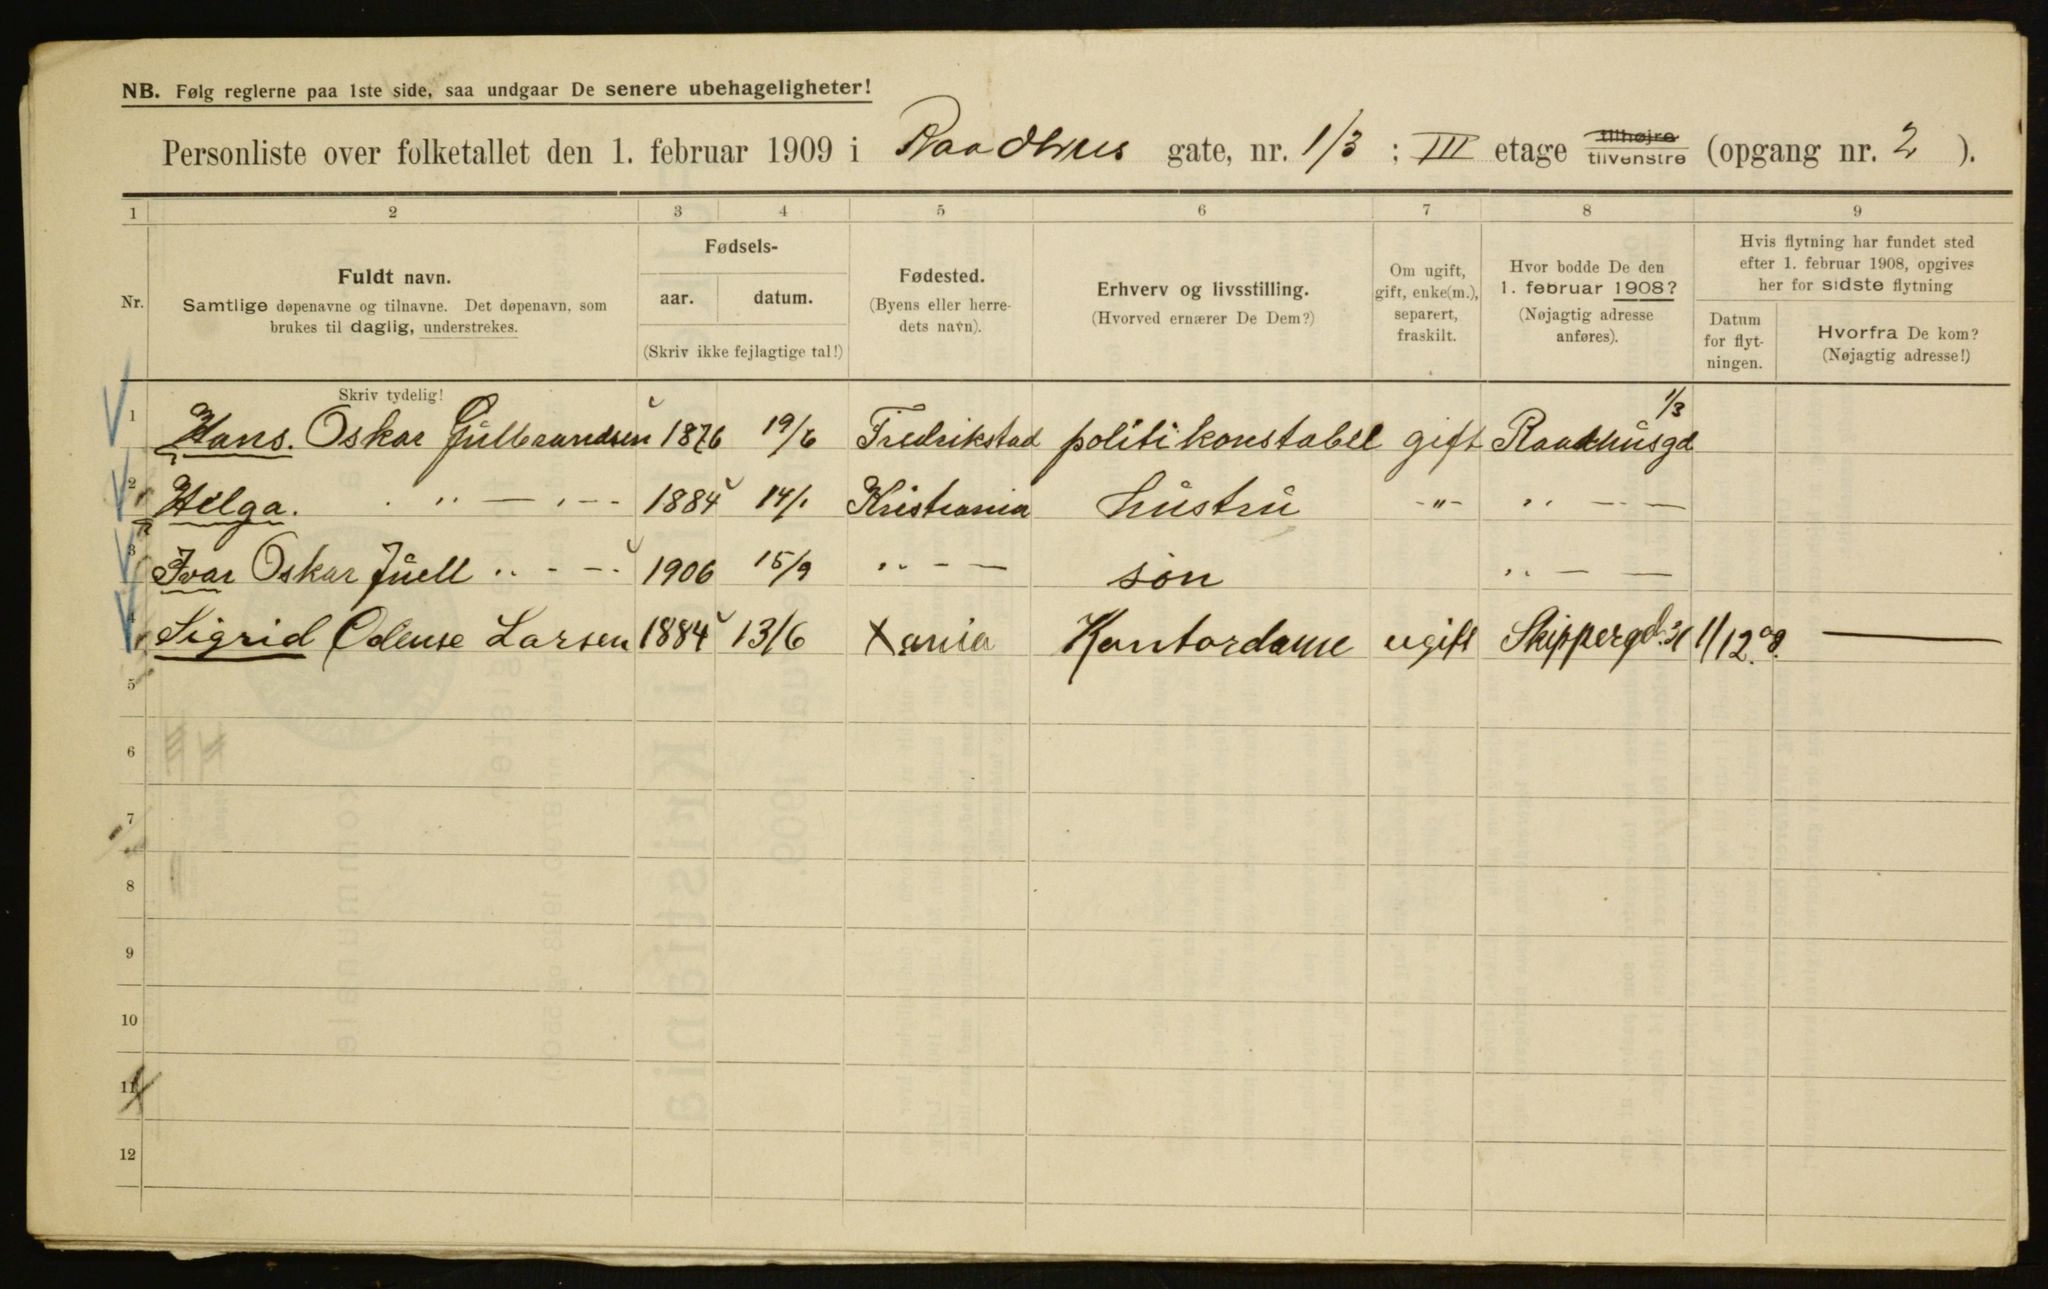 NB. Følg reglerne paa 1ste side, saa undgaar De senere ubehageligheter!
Personliste over folketallet den 1. februar 1909 i Raadhus gate, nr. 1/3 ; III etage tilhøjre tilvenstre (opgang nr. 2 ).
1 2 3 4 5 6 7 8 9
Nr. Fuldt navn. Samtlige døpenavne og tilnavne. Det døpenavn, som brukes til daglig, understrekes.
Fødsels- aar. datum. (Skriv ikke fejlagtige tal!)
Fødested. (Byens eller herredets navn).
Erhverv og livsstilling. (Hvorved ernærer De Dem?)
Om ugift, gift, enke(m.), separert, fraskilt.
Hvor bodde De den 1. februar 1908? (Nøjagtig adresse anføres).
Hvis flytning har fundet sted efter 1. februar 1908, opgives her for sidste flytning
Datum for flytningen. Hvorfra De kom? (Nøjagtig adresse!)
Skriv tydelig!
1 Hans. Oskar Gulbrandsen 1876 19/6 Fredrikstad politikonstabel gift Raadhusgd 1/3
2 Helga. „ — „ — 1884 14/1 Kristiania hustru -„- „ — —
3 Ivar Oskar Juell „ - — 1906 15/9 „ — — søn „ — —
4 Sigrid Odense Larsen 1884 13/6 Xania Kontordame ugift Skippergd. 1/12 08. ———
5
6
7
8
9
10
11
12